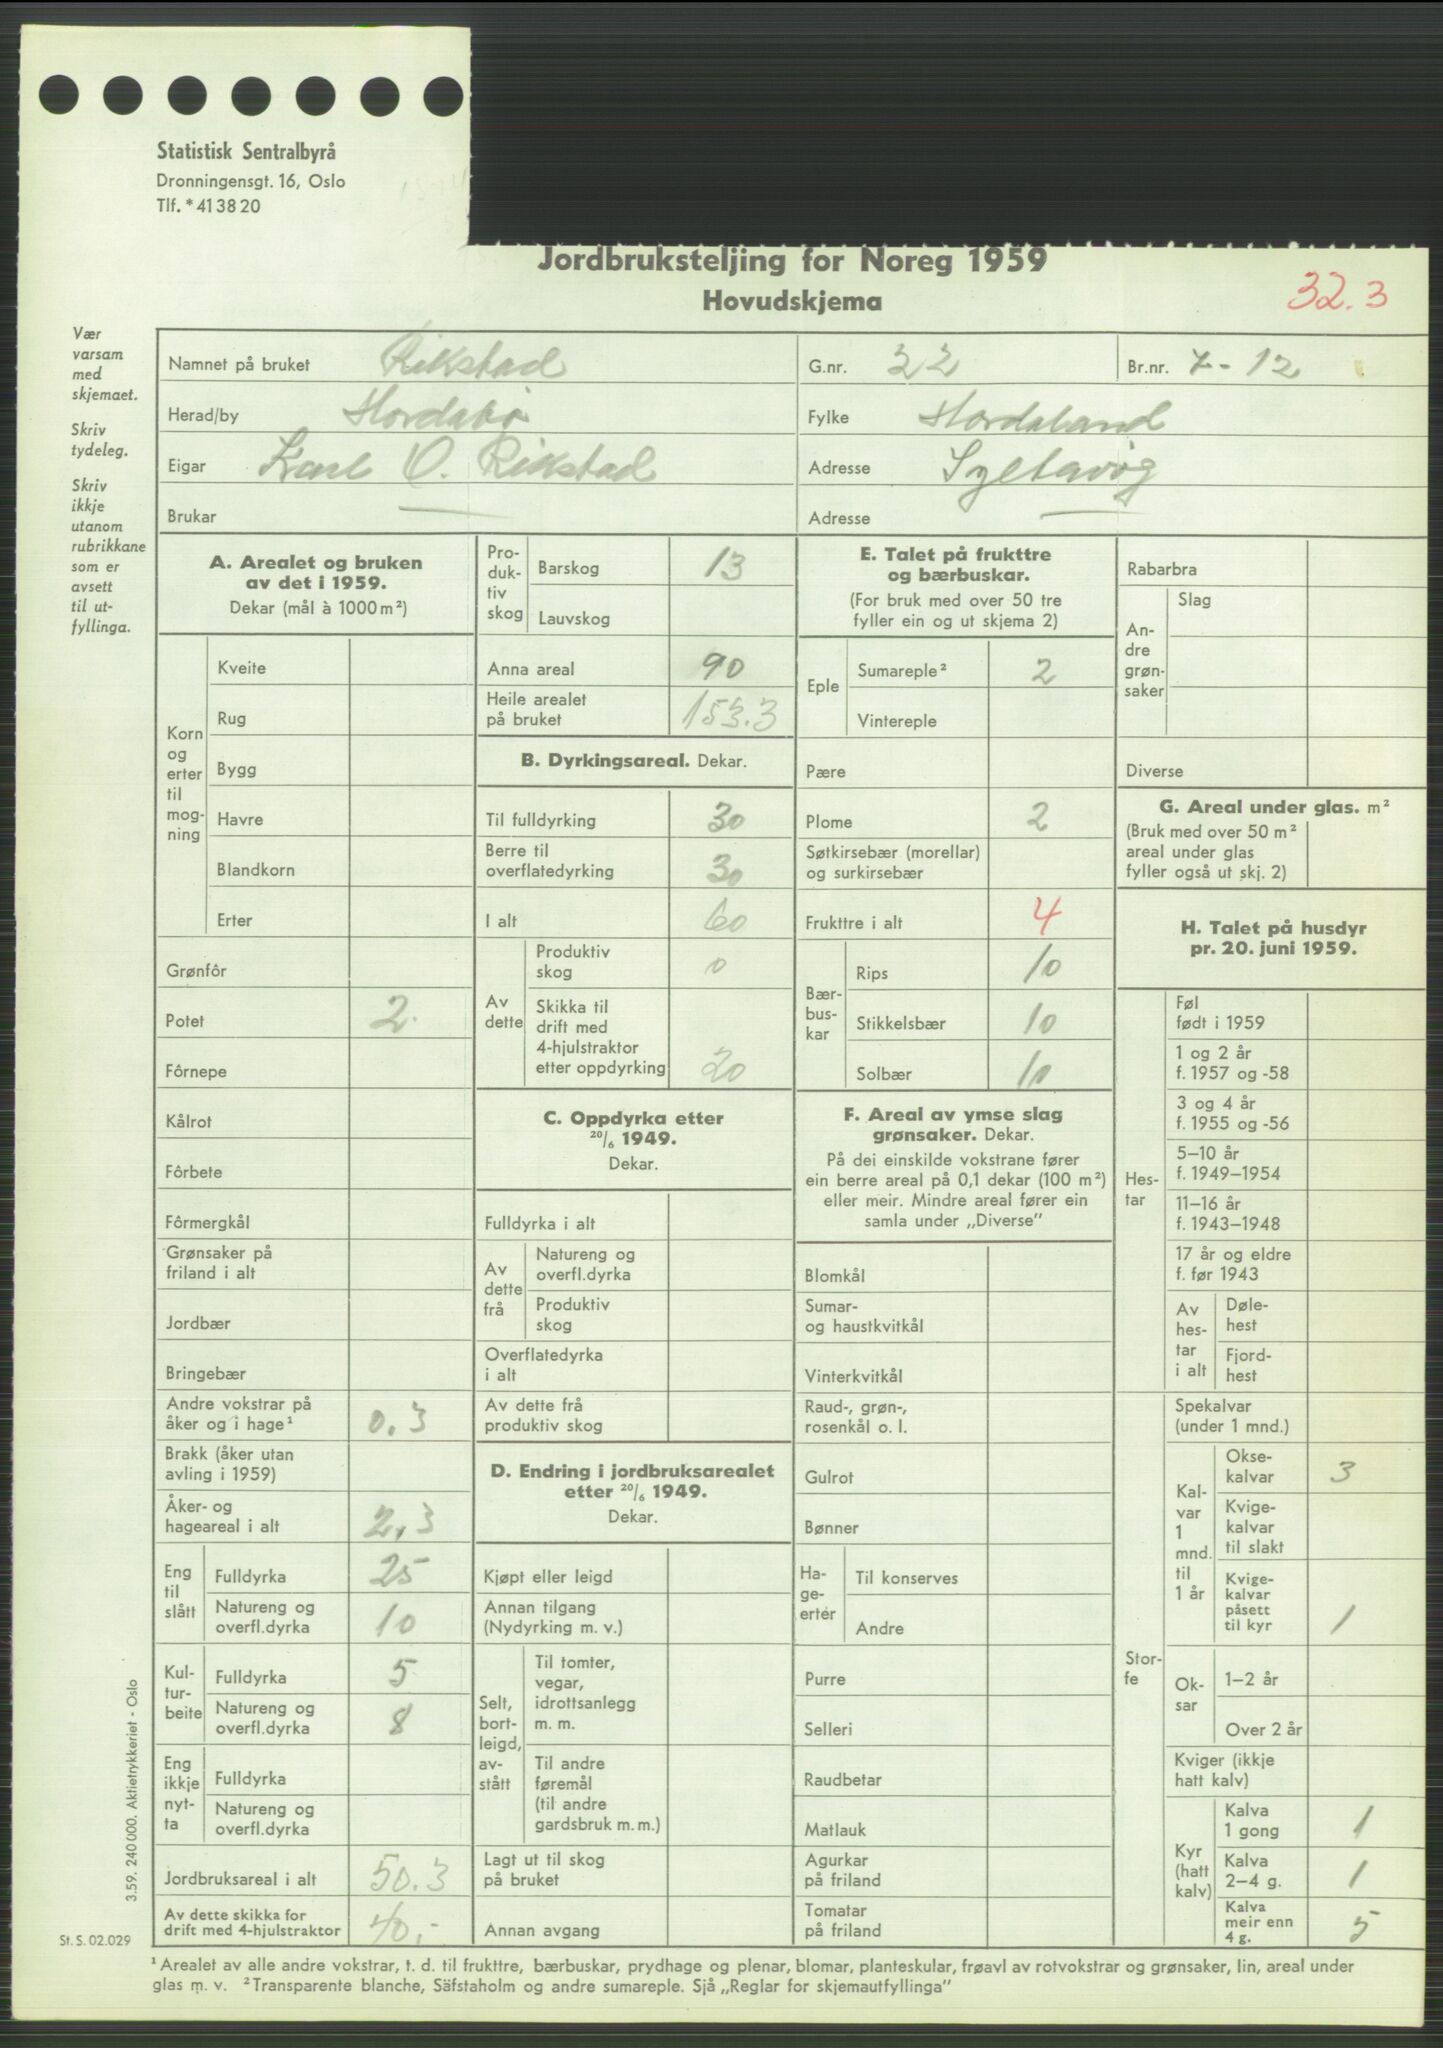 Statistisk Sentralbyrå
Dronningensgt. 16, Oslo
Tlf. * 41 38 20
Jordbruksteljing for Noreg 1959
Hovudskjema
32.3
Vær
varsam
med
skjemaet.
Skriv
tydeleg.
Skriv
ikkje
utanom
rubrikkane
som er
avsett
til ut-
fyllinga.
Namnet på bruket Rikstad G.nr. 22 Br.nr. 7-12
Herad/by Hordabø Fylke Hordaland
Eigar Karl O. Rikstad Adresse Syltavåg
Brukar — Adresse —
A. Arealet og bruken
av det i 1959.
Dekar (mål à 1000 m²)
Korn
og
erter
til
mog-
ning
Kveite
Rug
Bygg
Havre
Blandkorn
Erter
Grønfôr
Potet 2
Fôrnepe
Kålrot
Fôrbete
Fôrmergkål
Grønsaker på
friland i alt
Jordbær
Bringebær
Andre vokstrar på
åker og i hage¹ 0,3
Brakk (åker utan
avling i 1959)
Åker- og
hageareal i alt 2,3
Eng
til
slått
Fulldyrka 25
Natureng og
overfl.dyrka 10
Kul-
tur-
beite
Fulldyrka 5
Natureng og
overfl.dyrka 8
Eng
ikkje
nyt-
ta
Fulldyrka
Natureng og
overfl.dyrka
Jordbruksareal i alt 50.3
Av dette skikka for
drift med 4-hjulstraktor 40,-
Pro-
duk-
tiv
skog
Barskog 13
Lauvskog
Anna areal 90
Heile arealet
på bruket 153.3
B. Dyrkingsareal. Dekar.
Til fulldyrking 30
Berre til
overflatedyrking 30
I alt 60
Av
dette
Produktiv
skog 0
Skikka til
drift med
4-hjulstraktor
etter oppdyrking 20
C. Oppdyrka etter
20/6 1949.
Dekar.
Fulldyrka i alt
Av
dette
frå
Natureng og
overfl.dyrka
Produktiv
skog
Overflatedyrka
i alt
Av dette frå
produktiv skog
D. Endring i jordbruksarealet
etter 20/6 1949.
Dekar.
Kjøpt eller leigd
Annan tilgang
(Nydyrking m. v.)
Selt,
bort-
leigd,
av-
stått
Til tomter,
vegar,
idrottsanlegg
m. m.
Til andre
føremål
(til andre
gardsbruk m. m.)
Lagt ut til skog
på bruket
Annan avgang
E. Talet på frukttre
og bærbuskar.
(For bruk med over 50 tre
fyller ein og ut skjema 2)
Eple
Sumareple² 2
Vintereple
Pære
Plome 2
Søtkirsebær (morellar)
og surkirsebær
Frukttre i alt 4
Bær-
bus-
kar
Rips 10
Stikkelsbær 10
Solbær 10
F. Areal av ymse slag
grønsaker. Dekar.
På dei einskilde vokstrane fører
ein berre areal på 0,1 dekar (100 m²)
eller meir. Mindre areal fører ein
samla under „Diverse”
Blomkål
Sumar-
og haustkvitkål
Vinterkvitkål
Raud-, grøn-,
rosenkål o. l.
Gulrot
Bønner
Ha-
ge-
erter
Til konserves
Andre
Purre
Selleri
Raudbetar
Matlauk
Agurkar
på friland
Tomatar
på friland
Rabarbra
An-
dre
grøn-
saker
Slag
Diverse
G. Areal under glas. m²
(Bruk med over 50 m²
areal under glas
fyller også ut skj. 2)
H. Talet på husdyr
pr. 20. juni 1959.
Hes-
tar
Føl
født i 1959
1 og 2 år
f. 1957 og -58
3 og 4 år
f. 1955 og -56
5–10 år
f. 1949–1954
11–16 år
f. 1943–1948
17 år og eldre
f. før 1943
Av
hes-
tar
i alt
Døle-
hest
Fjord-
hest
Stor-
fe
Spekalvar
(under 1 mnd.)
Kal-
var
1
mnd.
til
1 år
Okse-
kalvar 3
Kvige-
kalvar
til slakt
Kvige-
kalvar
påsett
til kyr 1
Ok-
sar
1–2 år
Over 2 år
Kviger (ikkje
hatt kalv)
Kyr
(hatt
kalv)
Kalva
1 gong 1
Kalva
2–4 g. 1
Kalva
meir enn
4 g. 5
3.59. 240 000. Aktietrykkeriet - Oslo
St. S. 02.029
¹ Arealet av alle andre vokstrar, t. d. til frukttre, bærbuskar, prydhage og plenar, blomar, planteskular, frøavl av rotvokstrar og grønsaker, lin, areal under
glas m. v. ² Transparente blanche, Säfstaholm og andre sumareple. Sjå „Reglar for skjemautfyllinga”